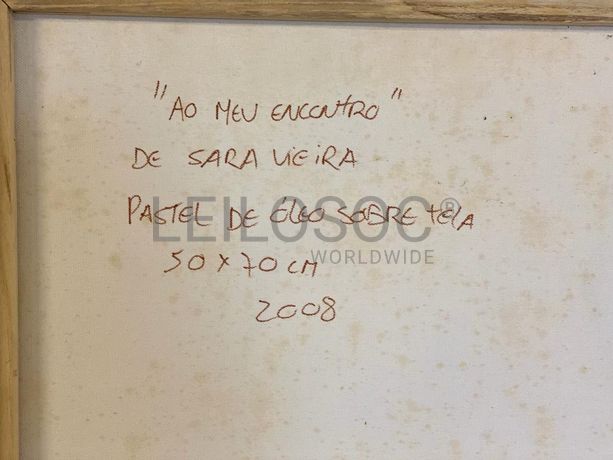 "AO MEU ENCONTRO"
DE SARA VIEIRA
PASTEL DE ÓLEO SOBRE TELA
LEILOSOC®
WORLDWIDE
50 x 70 CM
2008